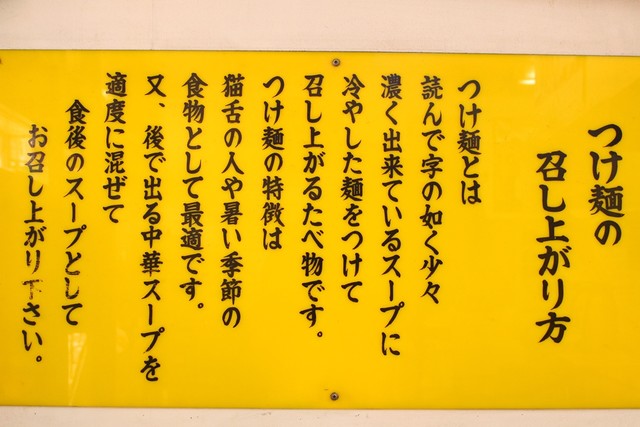 つけ麺の
召し上がり方
つけ麺とは
読んで字の如く少々
濃く出来ているスープに
冷やした麺をつけて
召し上がるたべ物です。
つけ麺の特徴は
猫舌の人や暑い季節の
食物として最適です。
又、後で出る中華スープを
適度に混ぜて
食後のスープとして
お召し上がり下さい。